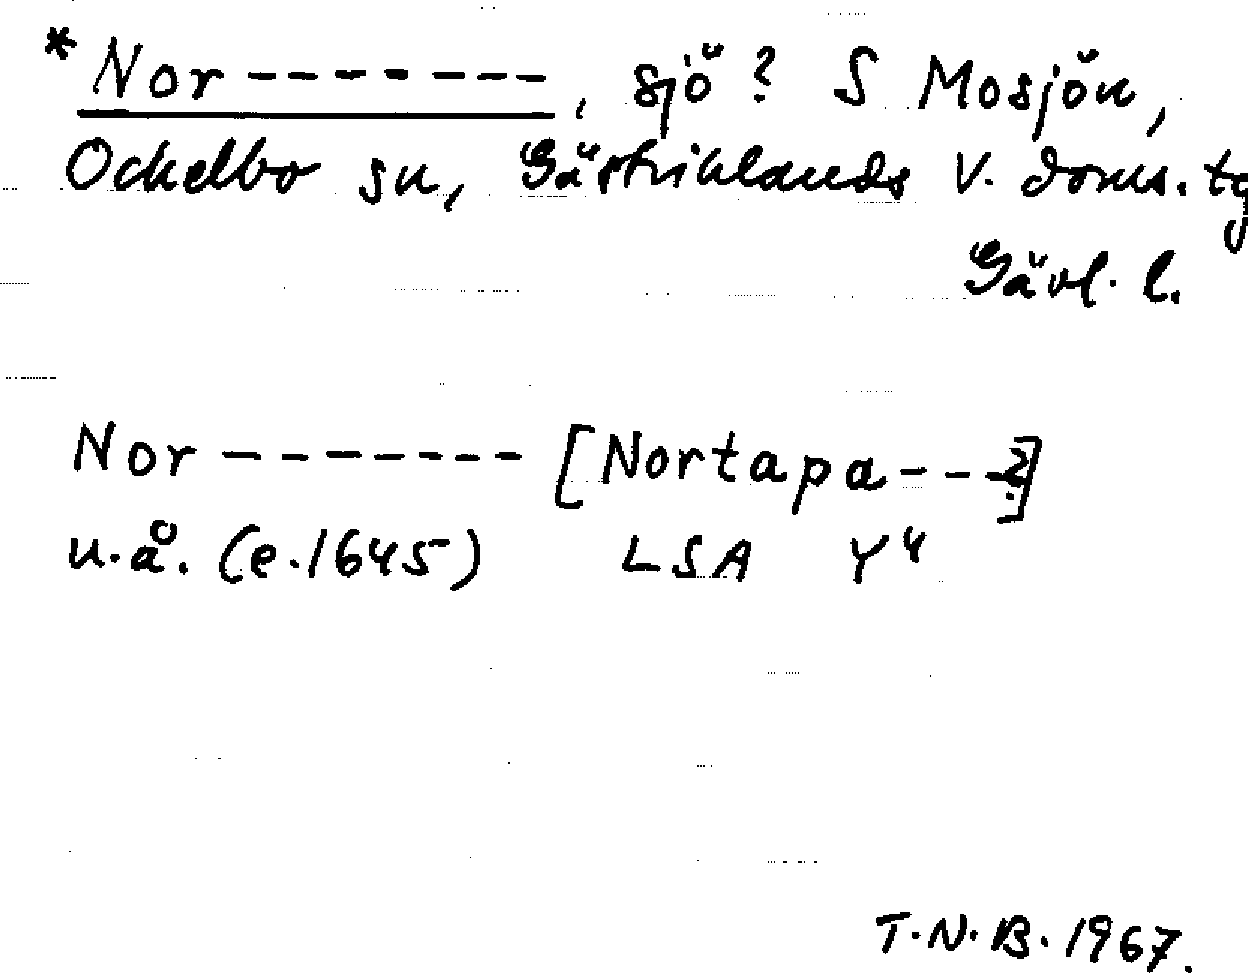 *Nor-------, sjö? S Mosjön,
Ockelbo sn, Gästriklands V. doms. tg
Gävl. l.
Nor------- [Nortapa---?]
u.å. (e.1645) LSA Y4
T.N.B. 1967.